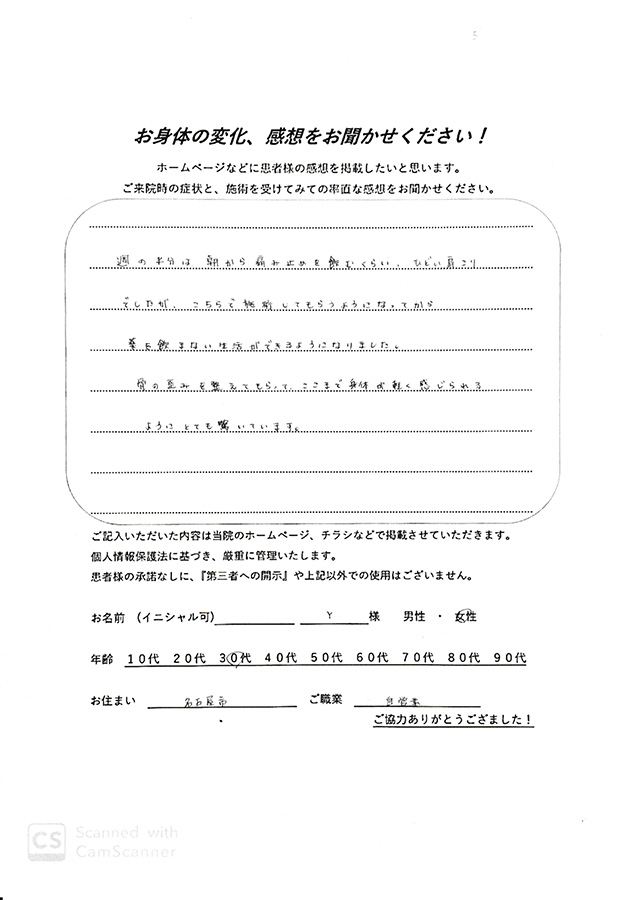 お身体の変化、感想をお聞かせください！
ホームページなどに患者様の感想を掲載したいと思います。
ご来院時の症状と、施術を受けてみての率直な感想をお聞かせください。
週の半分は 朝から痛み止めを飲むくらい、ひどい肩こり
でしたが、こちらで施術してもらうようになってから
薬を飲まない生活ができるようになりました。
骨の歪みを整えてもらって、ここまで身体が軽く感じられる
ようにとても驚いています。
ご記入いただいた内容は当院のホームページ、チラシなどで掲載させていただきます。
個人情報保護法に基づき、厳重に管理いたします。
患者様の承諾なしに、『第三者への開示』や上記以外での使用はございません。
お名前 （イニシャル可） Y 様 男性 ・ 女性
年齢 １０代 ２０代 ３０代 ４０代 ５０代 ６０代 ７０代 ８０代 ９０代
お住まい 名古屋市 ご職業 自営業
ご協力ありがとうござました！
CS Scanned with
CamScanner